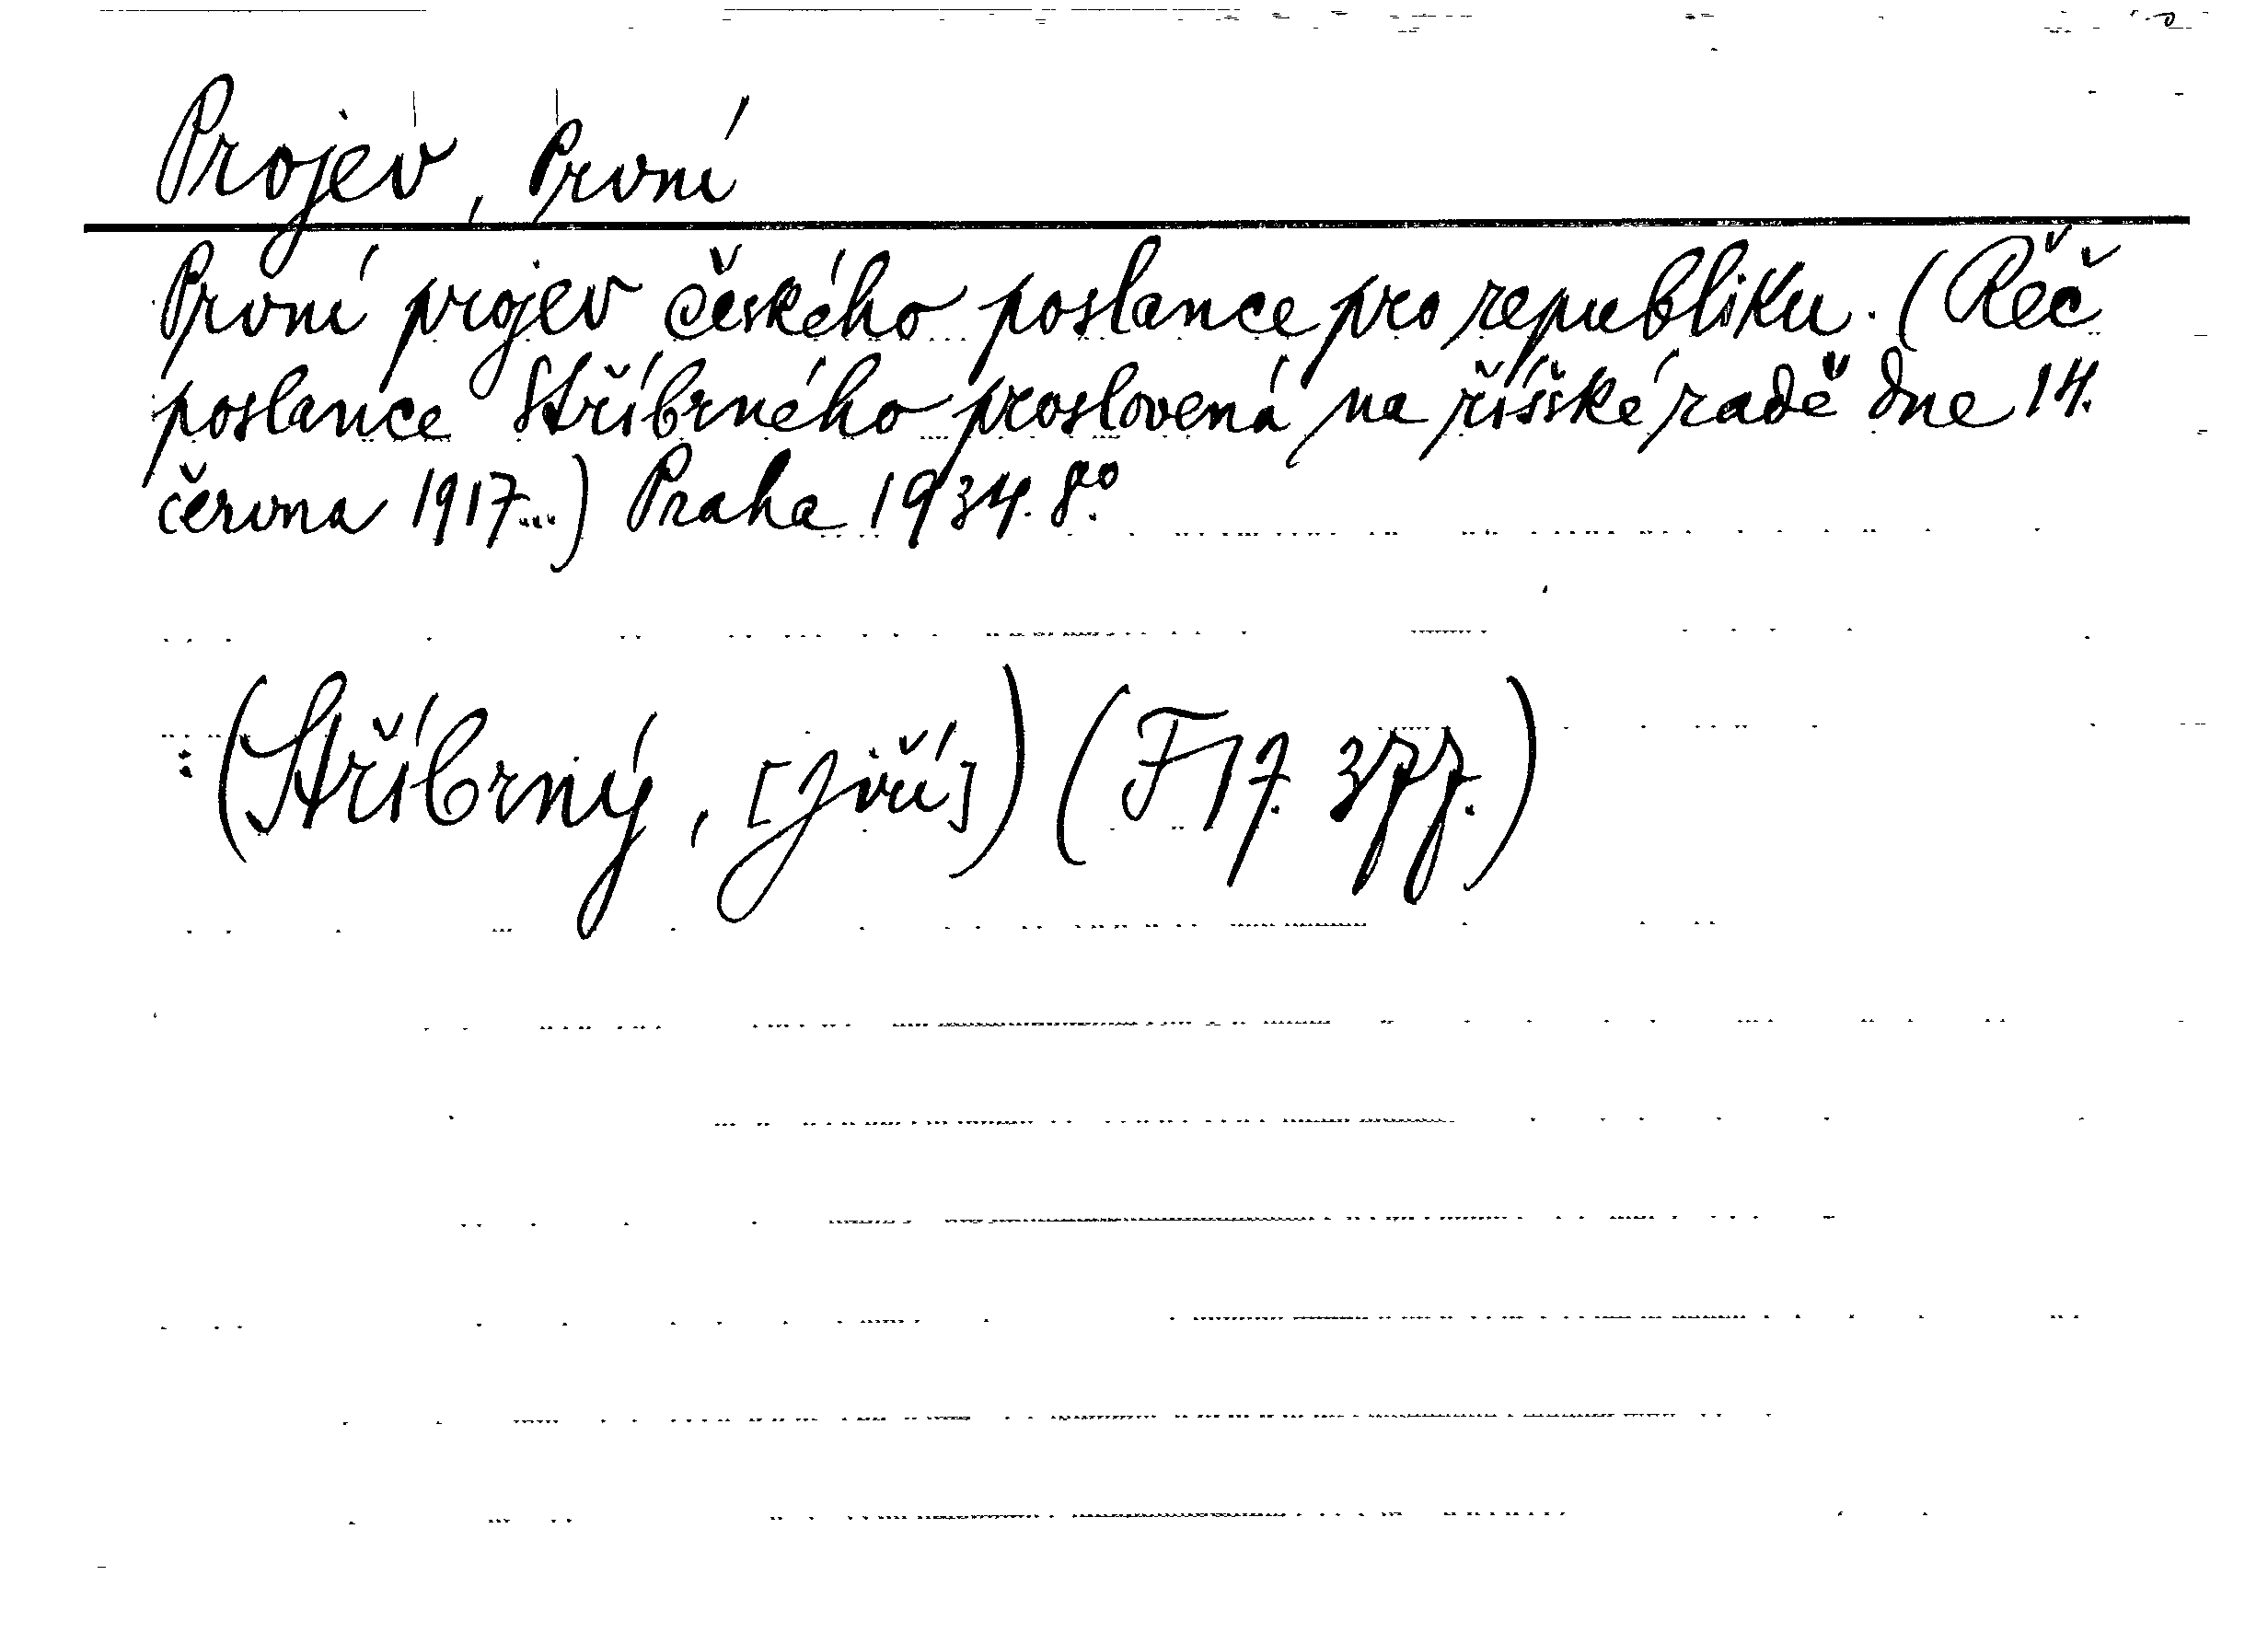 Projev, První
První projev českého poslance pro republiku. (Řeč
poslance Stříbrného proslovená na říšské radě dne 14.
června 1917...) Praha 1934. 8°.
(Stříbrný, [Jiří]) (F 17. 377.)